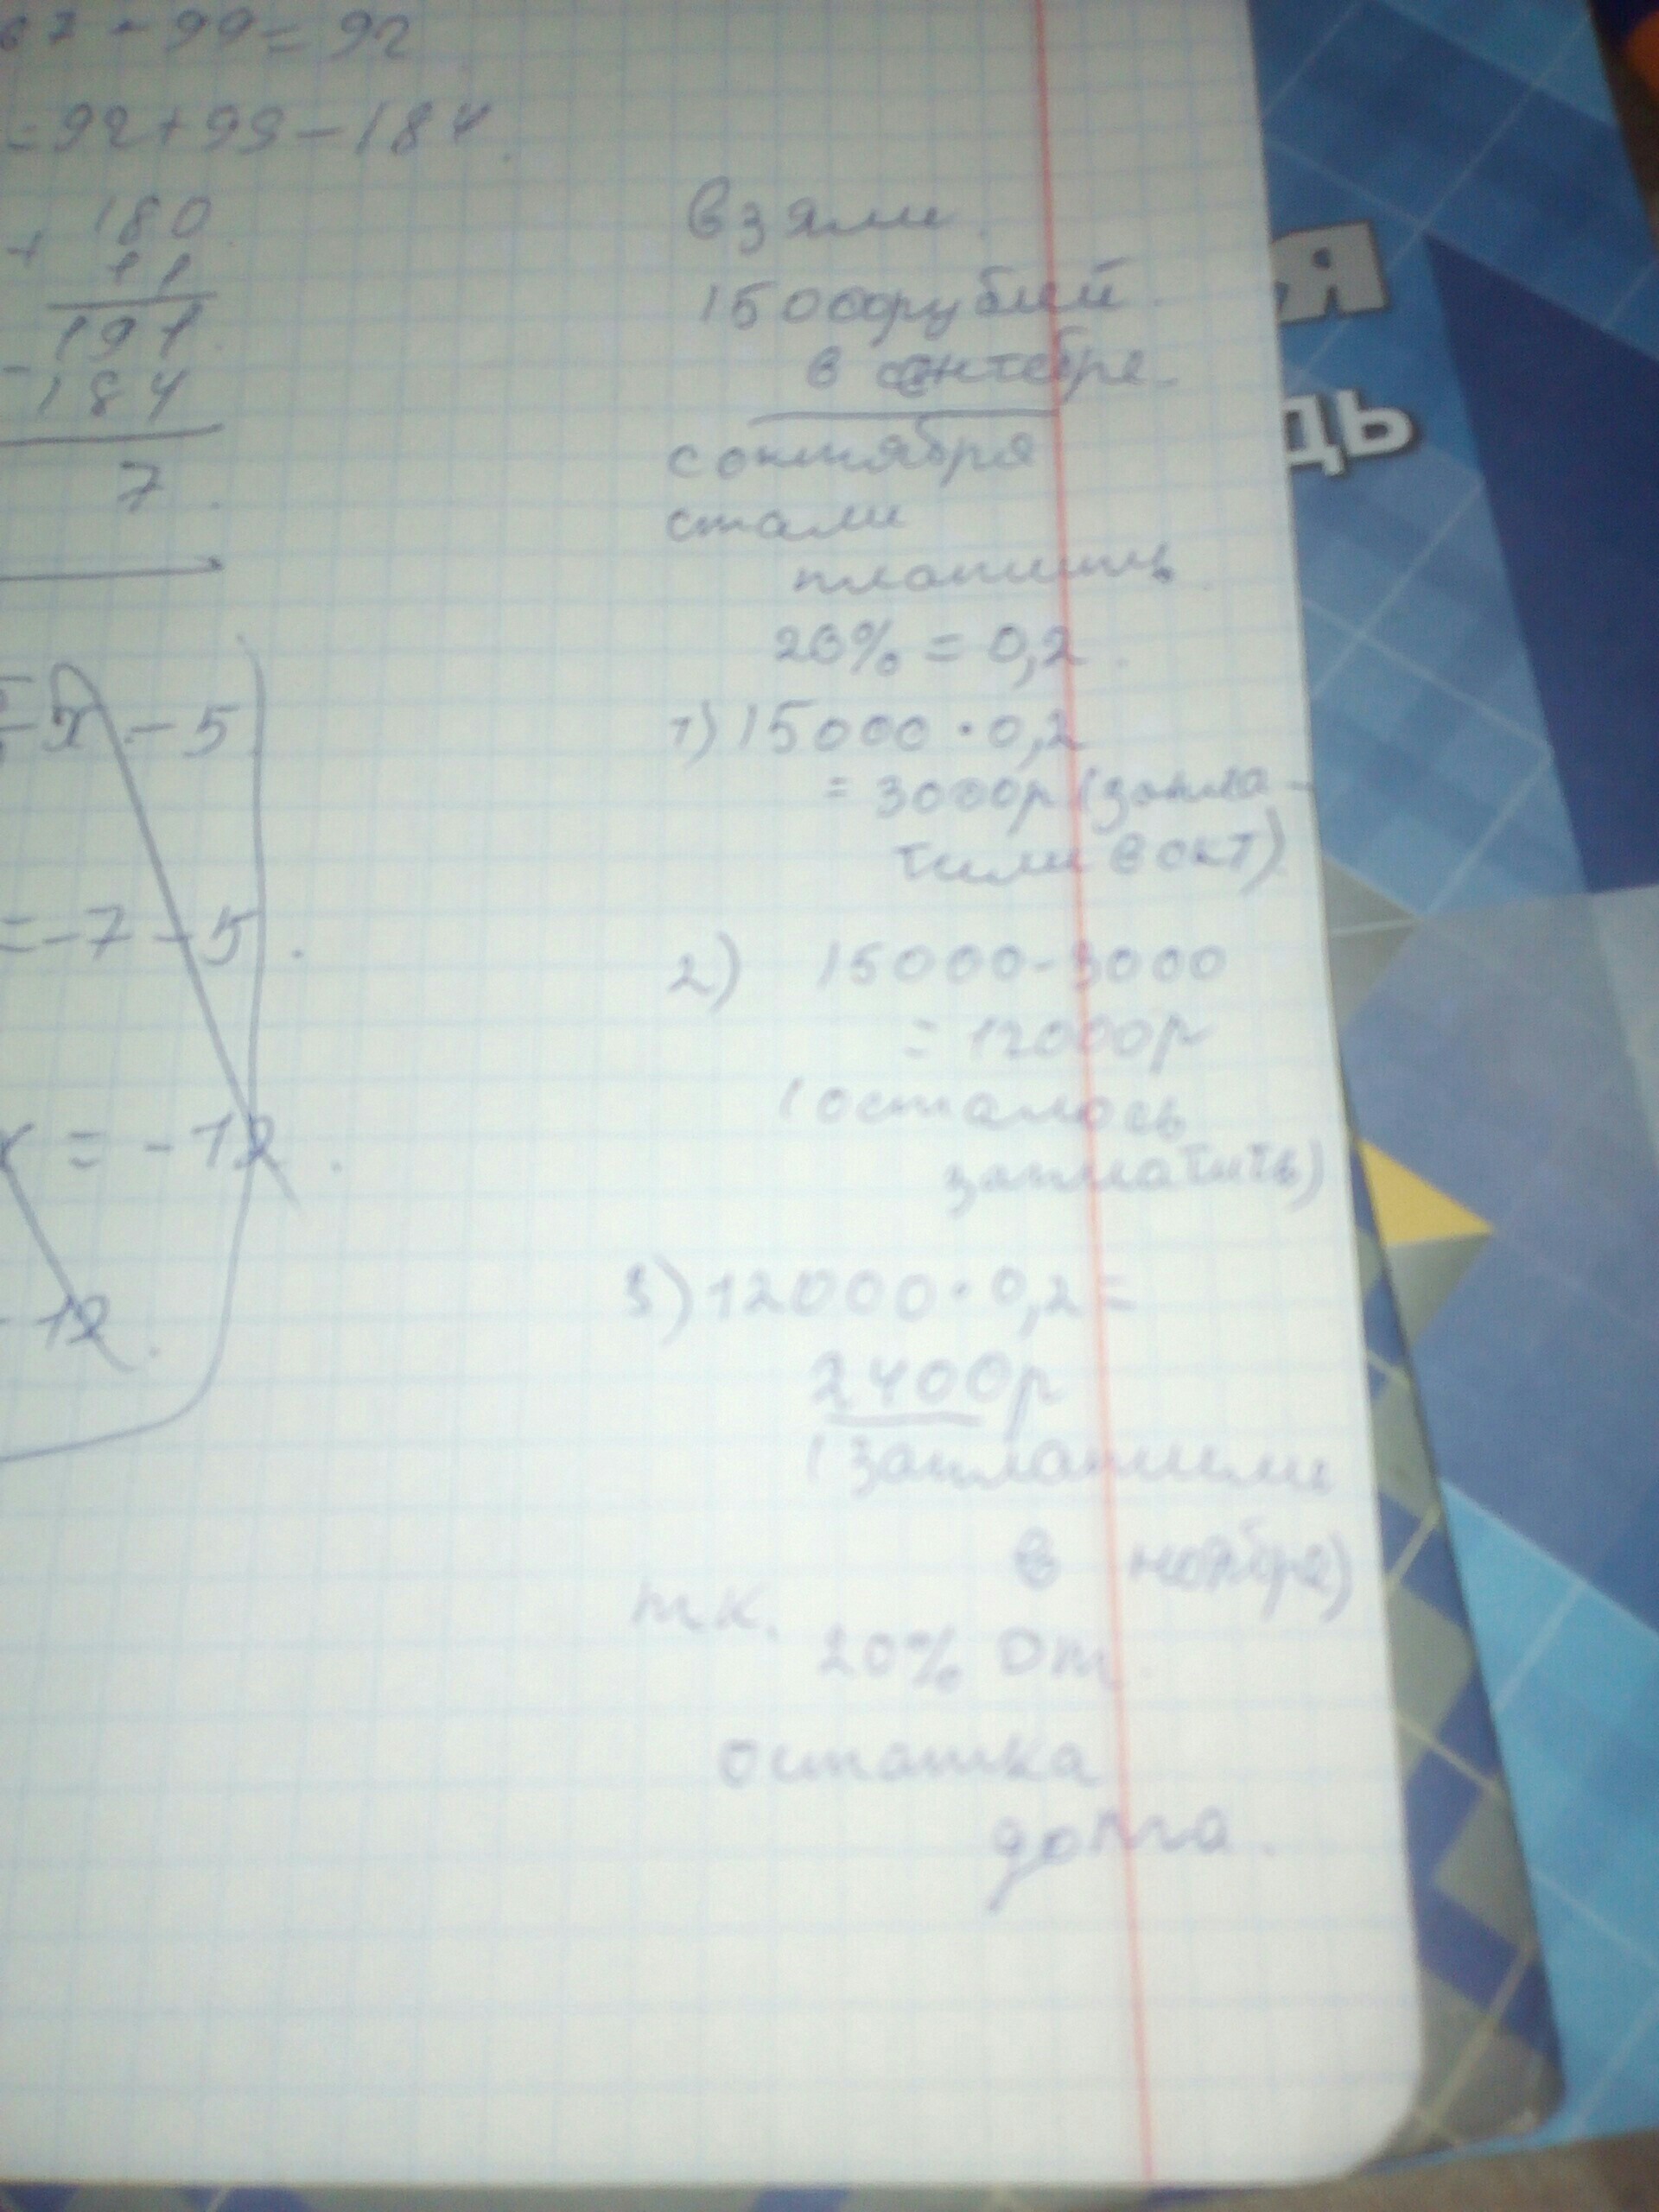 67 - 99 = 92
= 92 + 99 - 184
+ 180
11
191
- 184
7
x - 5
= -7 - 5
x = -12
- 12
взяли
15000 рублей
в сентябре
с октября
стали
платить
20% = 0,2
1) 15000 · 0,2
= 3000р (запла-
тили в окт)
2) 15000 - 3000
= 12000р
(осталось
заплатить)
3) 12000 · 0,2 =
2400р
(заплатили
в ноябре)
т.к.
20% от
остатка
долга.
я
дь